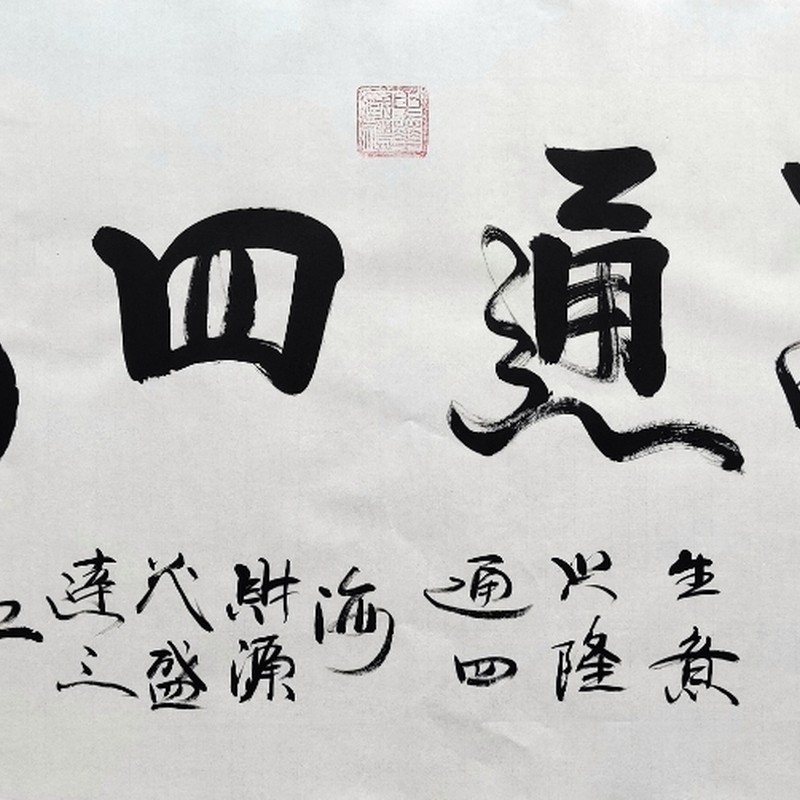 通四
生意
兴隆
通四
海
財源
茂盛
達三